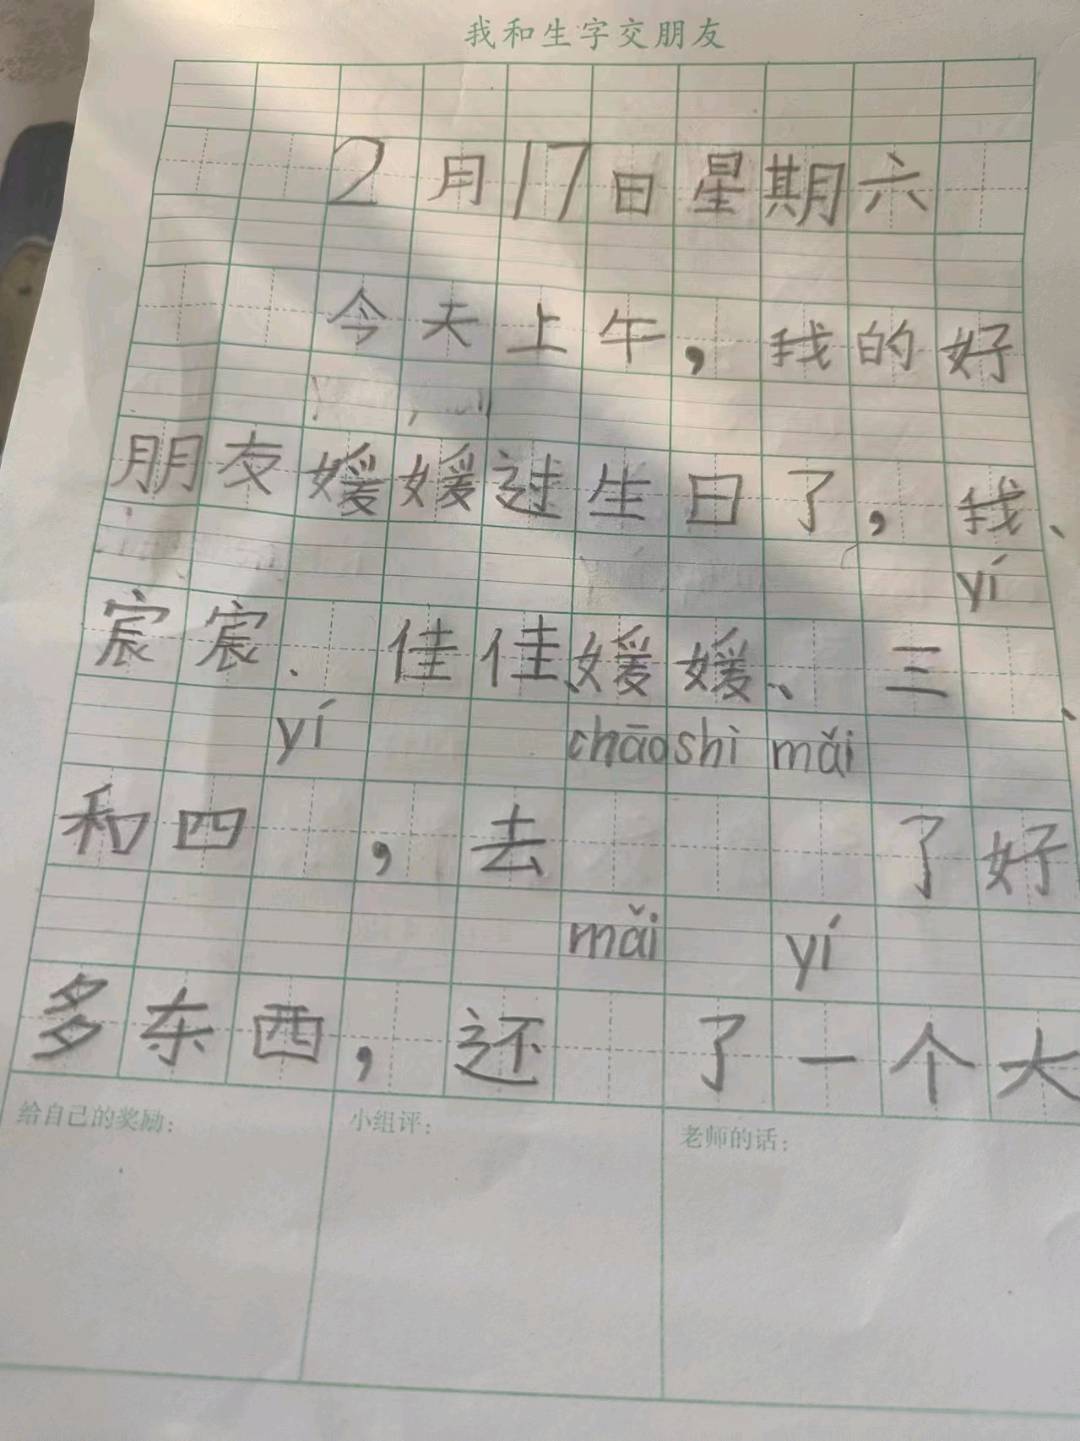 我和生字交朋友
2月17日星期六
今天上午，我的好
朋友媛媛过生日了，我、
yí
宸宸、佳佳、媛媛、三、
yí chāo shì mǎi
和四，去了好
mǎi yí
多东西，还了一个大
给自己的奖励：
小组评：
老师的话：